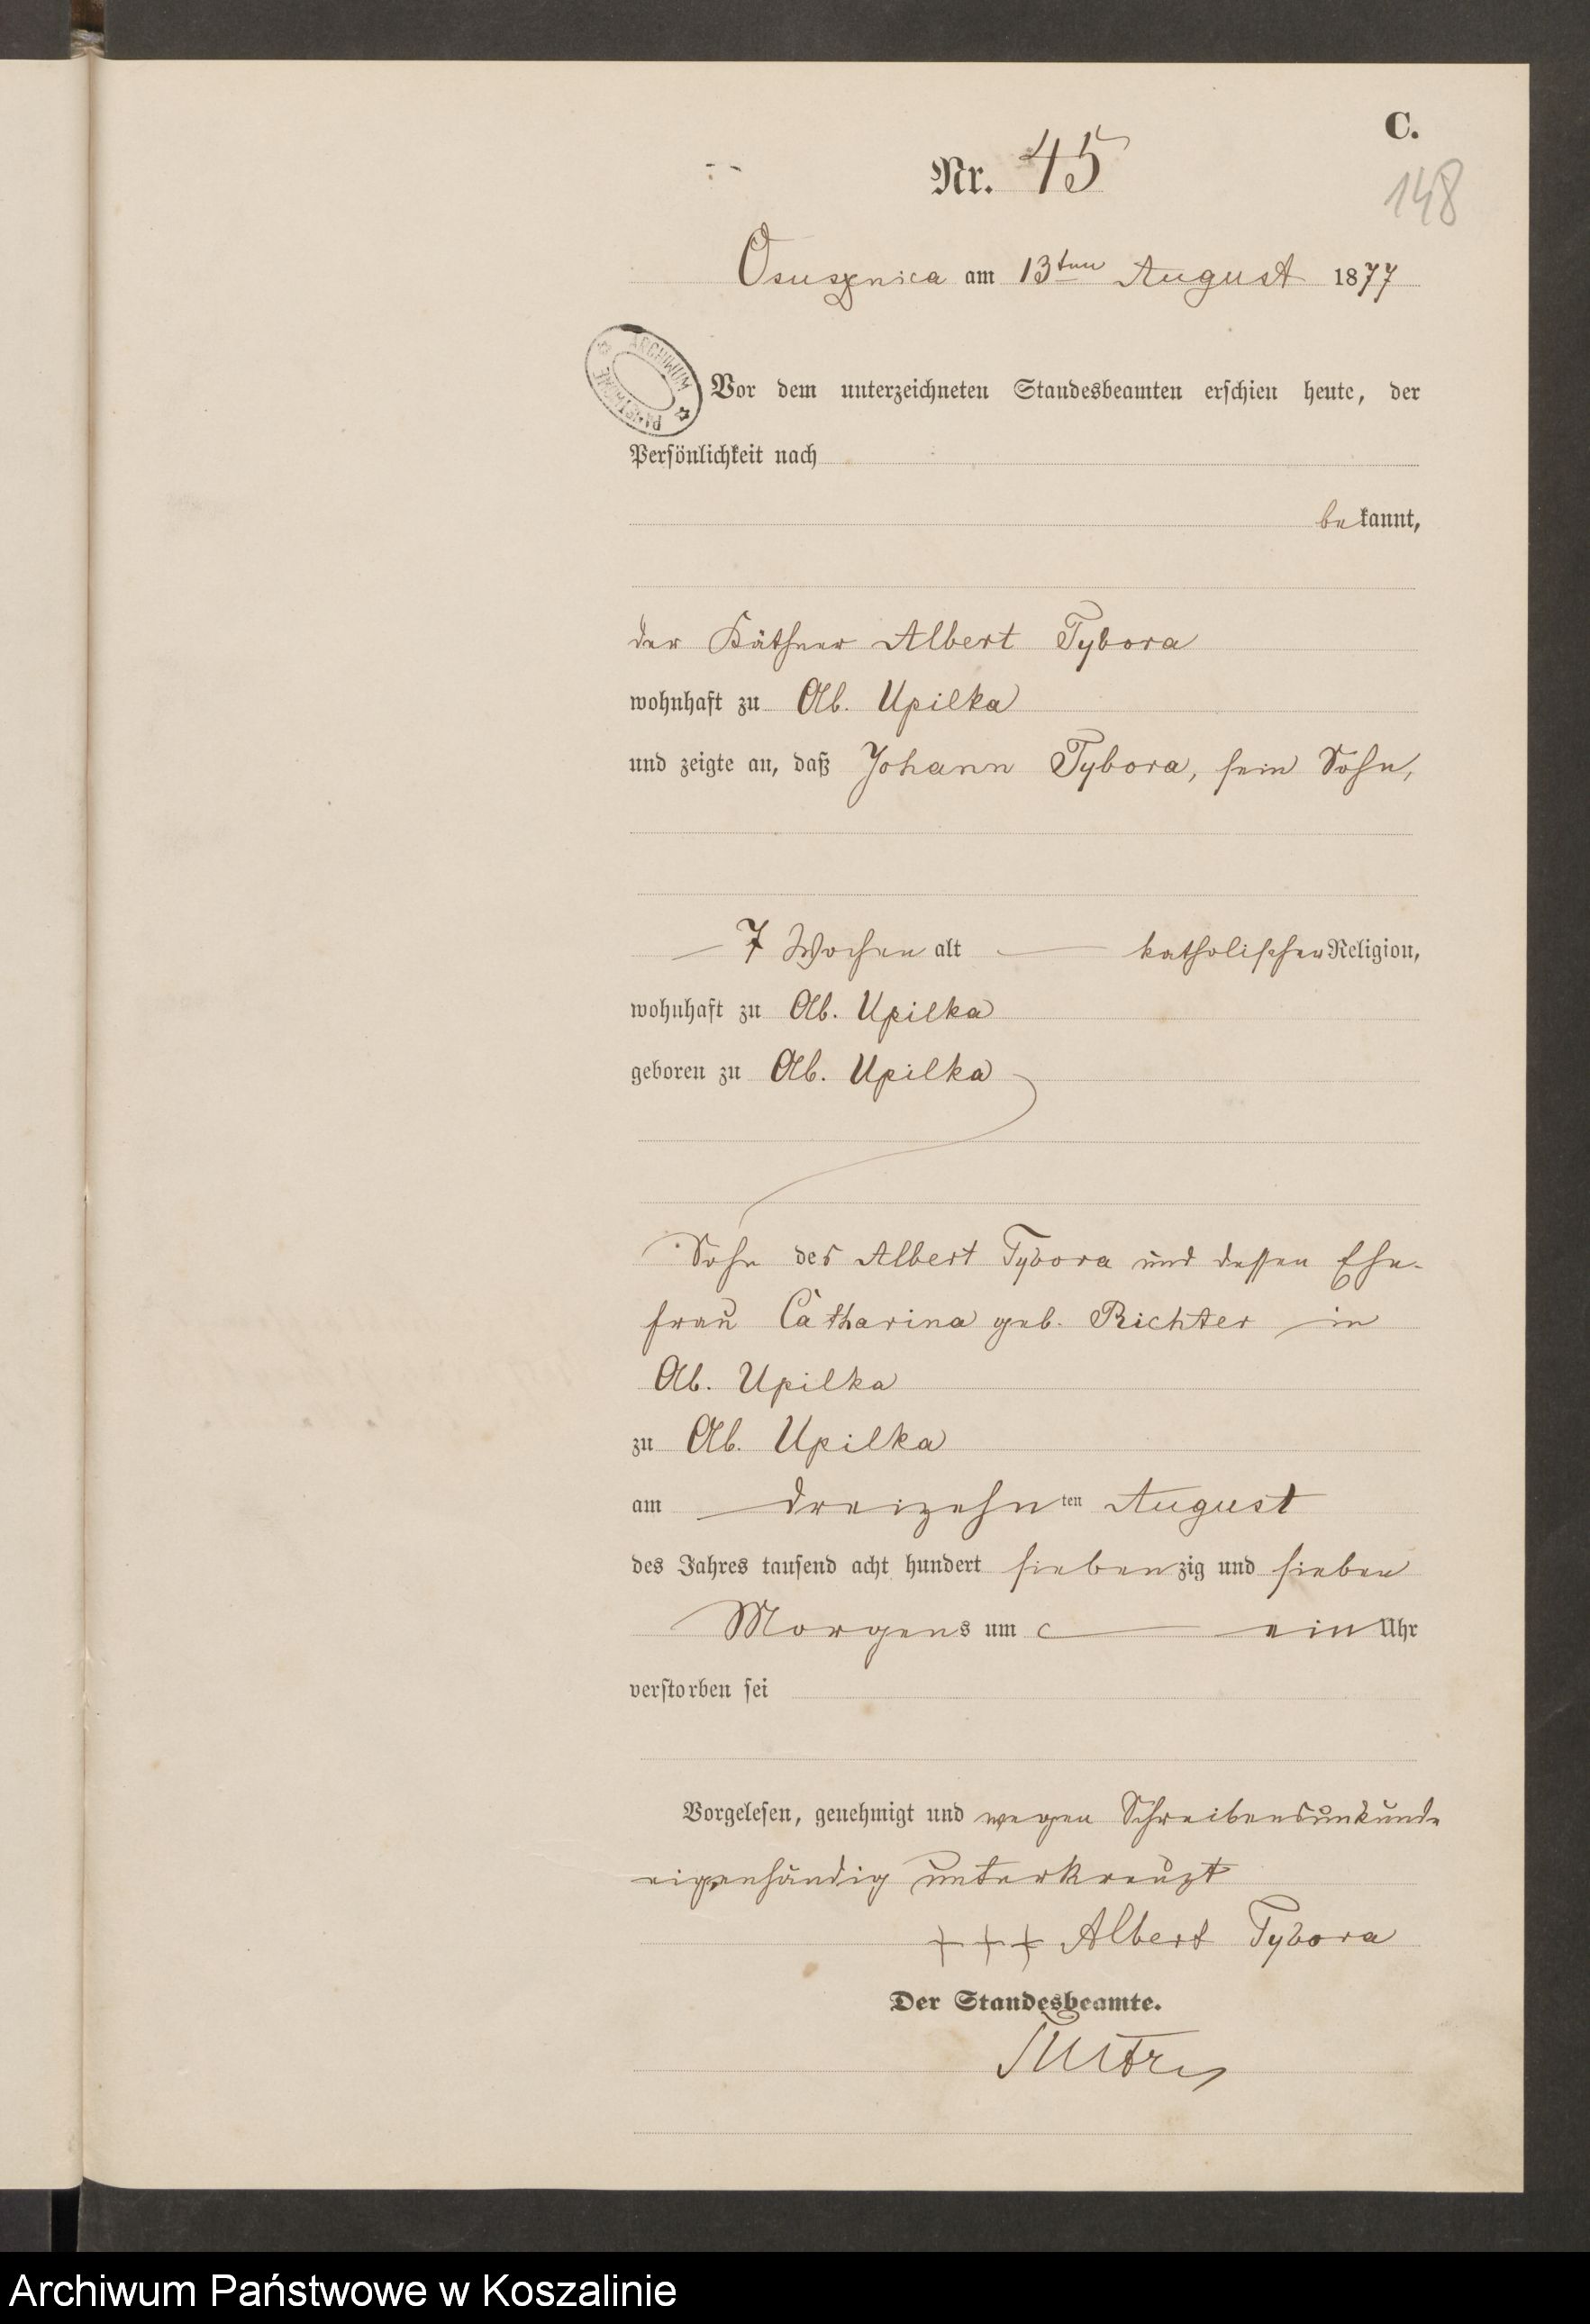 C.
Nr. 45
148
Osusznica am 13ten August 1877
ARCHIWUM PAŃSTWOWE
Vor dem unterzeichneten Standesbeamten erschien heute, der
Persönlichkeit nach
bekannt,
der Käthner Albert Tybora
wohnhaft zu Ab. Upilka
und zeigte an, daß Johann Tybora, sein Sohn,
7 Wochen alt katholischer Religion,
wohnhaft zu Ab. Upilka
geboren zu Ab. Upilka
Sohn des Albert Tybora und dessen Ehe-
frau Catharina geb. Richter in
Ab. Upilka
zu Ab. Upilka
am dreizehnten August
des Jahres tausend acht hundert siebenzig und sieben
Morgens um ein Uhr
verstorben sei
Vorgelesen, genehmigt und wegen Schreibensunkunde
eigenhändig unterkreuzt
+++ Albert Tybora
Der Standesbeamte.
Archiwum Państwowe w Koszalinie